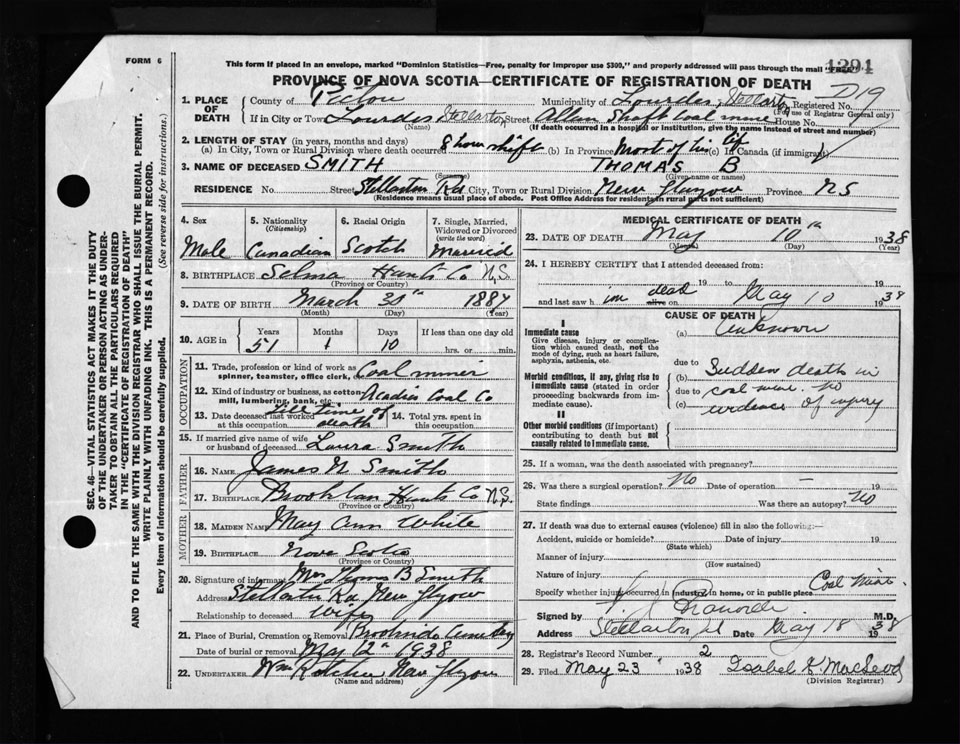 FORM 6
This form if placed in an envelope, marked "Dominion Statistics—Free, penalty for improper use $300," and properly addressed will pass through the mail "Free."
1291
PROVINCE OF NOVA SCOTIA—CERTIFICATE OF REGISTRATION OF DEATH
D19
1. PLACE OF DEATH County of Pictou Municipality of Lourdes, Stellarton Registered No.
(For use of Registrar General only)
If in City or Town Lourdes Stellarton Street Allan Shaft Coal mine House No.
(Name) (If death occurred in a hospital or institution, give the name instead of street and number)
2. LENGTH OF STAY (in years, months and days)
(a) In City, Town or Rural Division where death occurred 8 hour shift (b) In Province Most of his life (c) In Canada (if immigrant)
3. NAME OF DECEASED SMITH THOMAS B
(Surname) (Given name or names)
RESIDENCE No. Street Stellarton Rd City, Town or Rural Division New Glasgow Province NS
(Residence means usual place of abode. Post Office Address for residents in rural parts not sufficient)
4. Sex Male
5. Nationality (Citizenship) Canadian
6. Racial Origin Scotch
7. Single, Married, Widowed or Divorced (write the word) Married
8. BIRTHPLACE Selma Hants Co N.S.
(Province or Country)
9. DATE OF BIRTH March 30th 1887
(Month) (Day) (Year)
10. AGE in Years Months Days If less than one day old
51 1 10 hrs. or min.
OCCUPATION
11. Trade, profession or kind of work as spinner, teamster, office clerk, etc. Coal miner
12. Kind of industry or business, as cotton mill, lumbering, bank, etc. Acadia Coal Co
13. Date deceased last worked at this occupation till time of death
14. Total yrs. spent in this occupation
15. If married give name of wife or husband of deceased Laura Smith
FATHER
16. NAME James N Smith
17. BIRTHPLACE Hants Co N.S.
(Province or Country)
MOTHER
18. MAIDEN NAME May Ann White
19. BIRTHPLACE Nova Scotia
(Province or Country)
20. Signature of informant Mrs Thomas B Smith
Address Stellarton Rd New Glasgow
Relationship to deceased Wife
21. Place of Burial, Cremation or Removal Brookside Cemetery
Date of burial or removal May 12th 1938
22. UNDERTAKER Wm New Glasgow
(Name and address)
MEDICAL CERTIFICATE OF DEATH
23. DATE OF DEATH May 10th 1938
(Month) (Day) (Year)
24. I HEREBY CERTIFY that I attended deceased from:
19 to 19
and last saw him dead alive on May 10 1938
CAUSE OF DEATH
I
Immediate cause
Give disease, injury or complication which caused death, not the mode of dying, such as heart failure, asphyxia, asthenia, etc.
(a) Unknown
due to
Morbid conditions, if any, giving rise to immediate cause (stated in order proceeding backwards from immediate cause).
(b) Sudden death in
due to coal mine. no
(c) evidence of injury
II
Other morbid conditions (if important) contributing to death but not causally related to immediate cause.
25. If a woman, was the death associated with pregnancy?
26. Was there a surgical operation? No Date of operation — 19
State findings Was there an autopsy? No
27. If death was due to external causes (violence) fill in also the following:—
Accident, suicide or homicide? Date of injury 19
(State which)
Manner of injury
(How sustained)
Nature of injury
Specify whether injury occurred in industry, in home, or in public place Coal Mine.
Signed by M.D.
Address Stellarton Date May 18 1938
28. Registrar's Record Number 2
29. Filed May 23 1938 Isabel K. MacLeod
(Division Registrar)
SEC. 46—VITAL STATISTICS ACT MAKES IT THE DUTY
OF THE UNDERTAKER OR PERSON ACTING AS UNDER-
TAKER TO OBTAIN ALL THE PARTICULARS REQUIRED
IN THE "CERTIFICATE OF REGISTRATION OF DEATH"
AND TO FILE THE SAME WITH THE DIVISION REGISTRAR WHO SHALL ISSUE THE BURIAL PERMIT.
WRITE PLAINLY WITH UNFADING INK. THIS IS A PERMANENT RECORD.
Every item of Information should be carefully supplied. (See reverse side for instructions.)